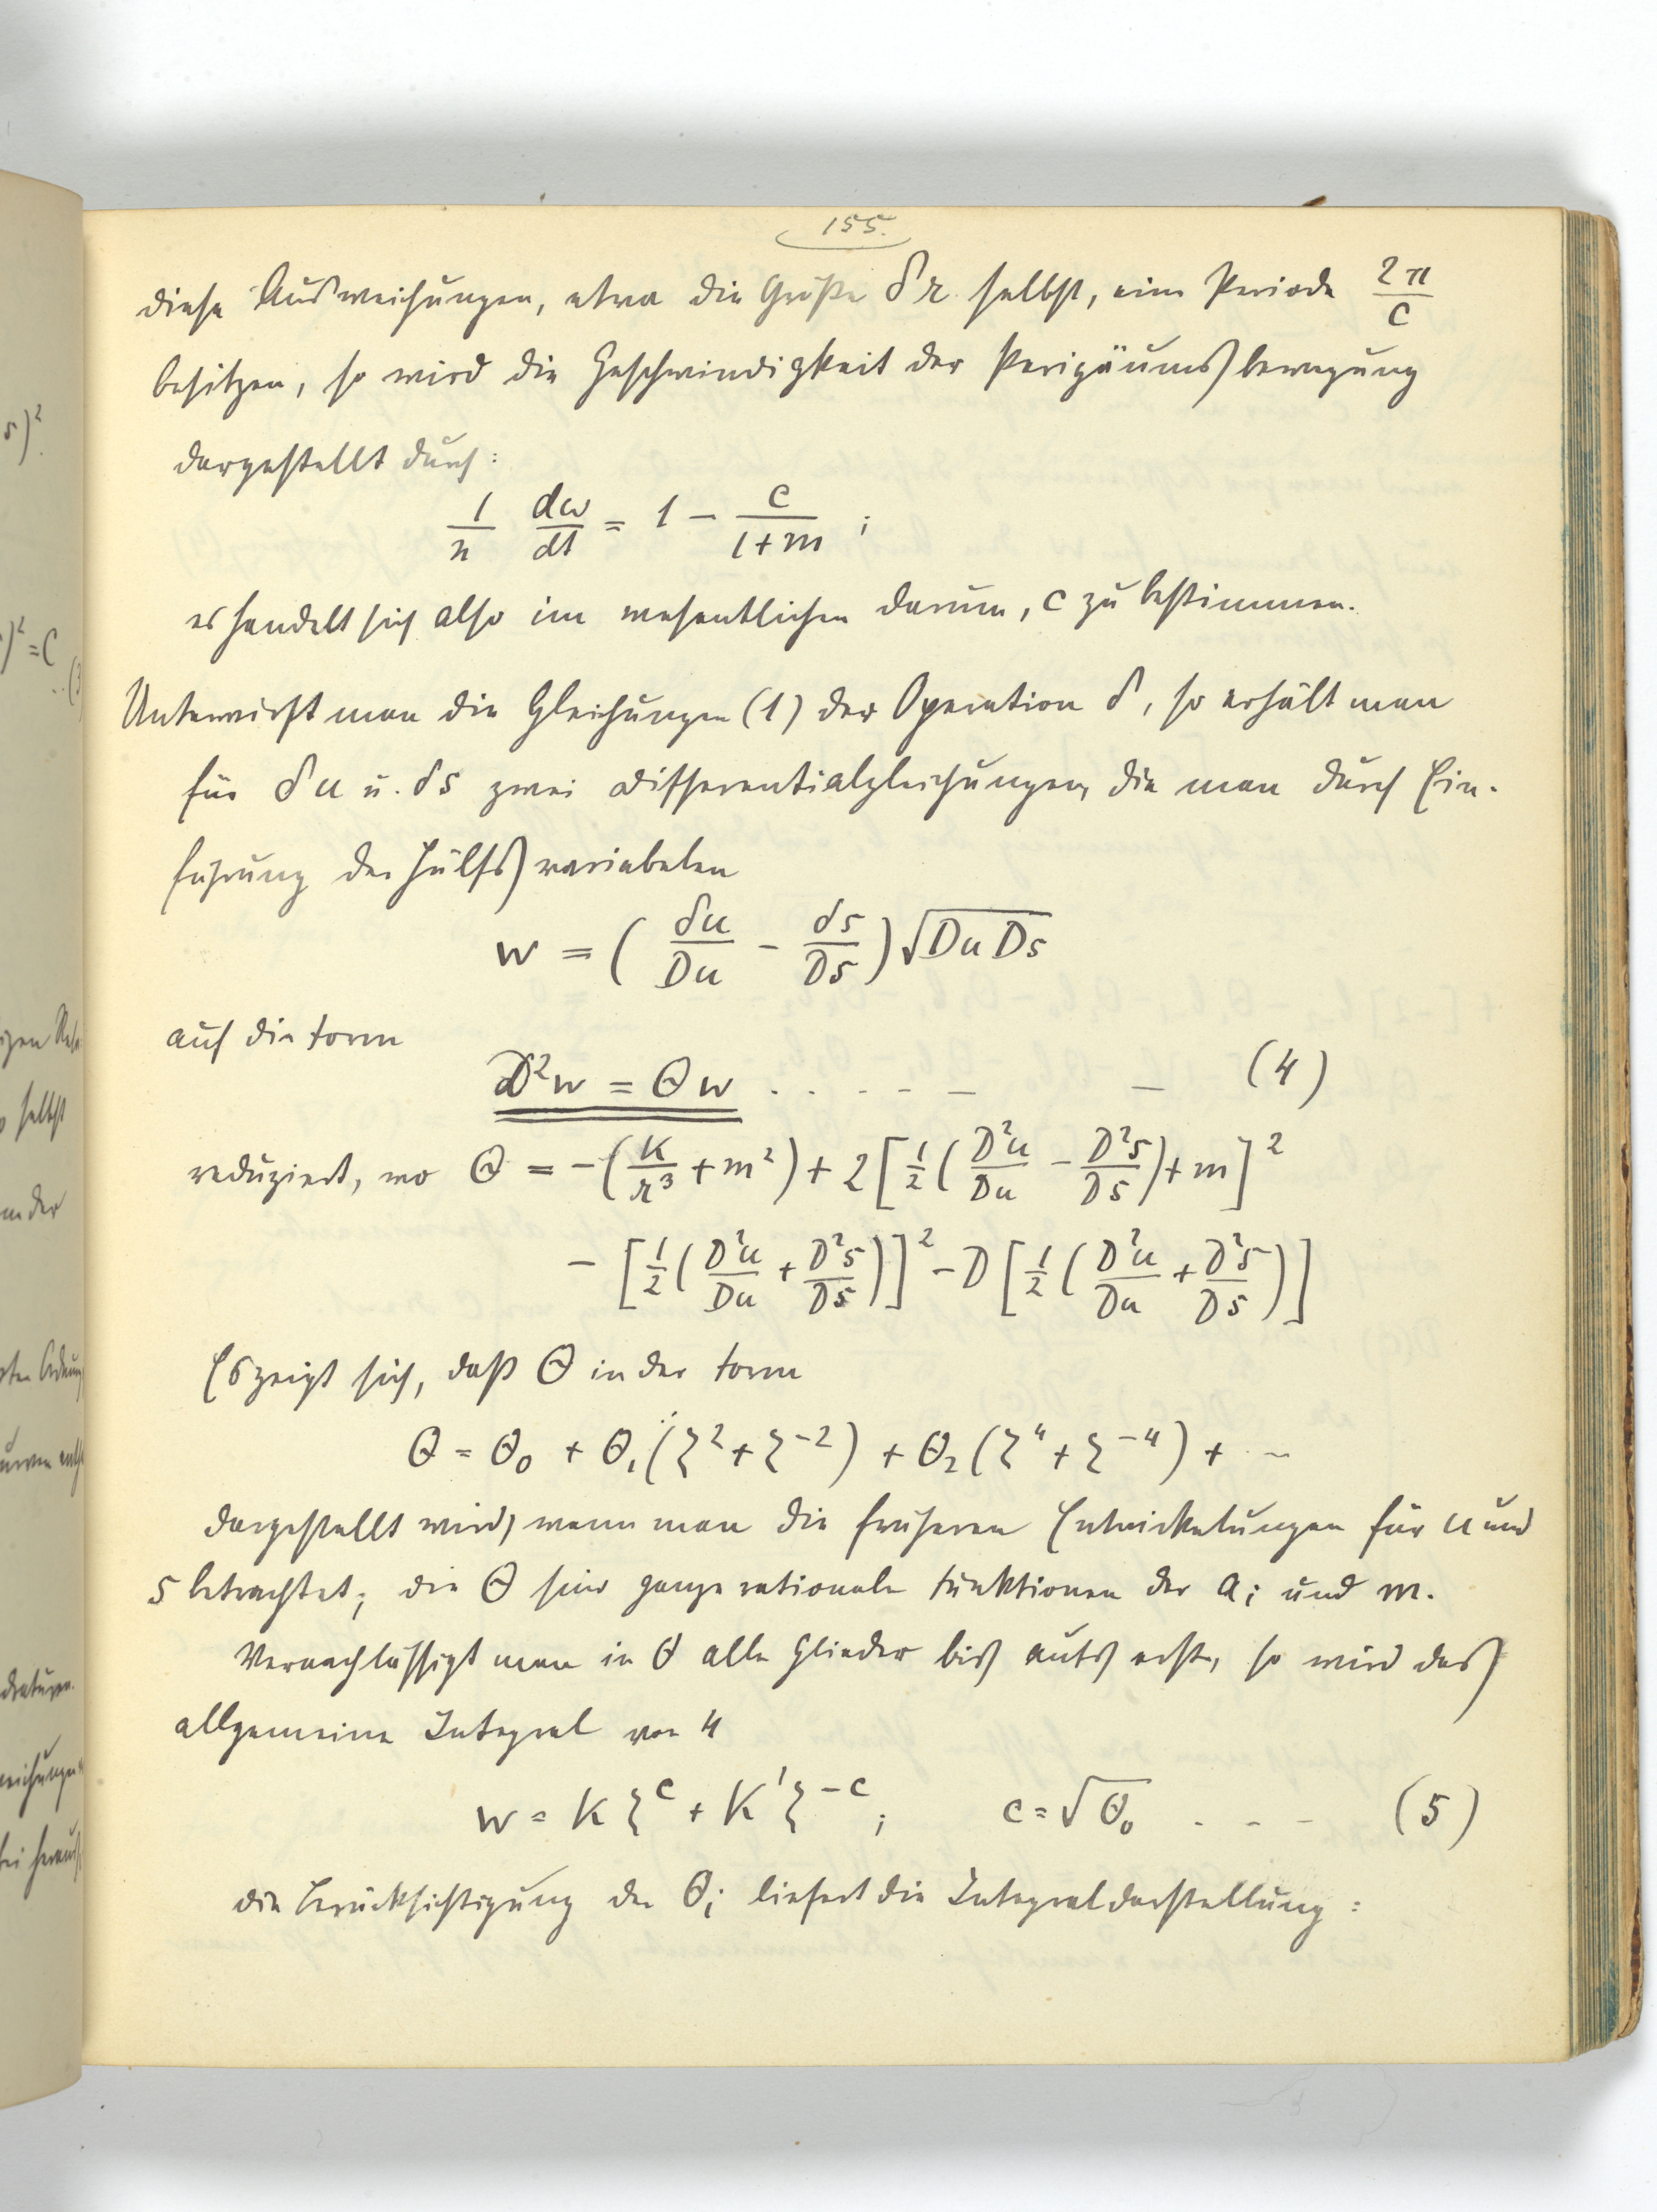 155.
diese Ausweichungen, etwa die Größe δr selbst, eine Periode 2π/c
besitzen, so wird die Geschwindigkeit der Perigäumsbewegung
dargestellt durch:
1/n dω/dt = 1 − c/(1+m) ;
es handelt sich also im wesentlichen darum, c zu bestimmen.
Unterwirft man die Gleichungen (1) der Operation δ, so erhält man
für δu u. δs zwei Differentialgleichungen, die man durch Ein-
führung der Hülfsvariabelen
w = ( δu/Du − δs/Ds ) √(Du Ds)
auf die Form
D²w = Θw . . . . . – – (4)
reduziert, wo Θ = −( K/r³ + m² ) + 2 [ 1/2 ( D²u/Du − D²s/Ds ) + m ]²
− [ 1/2 ( D²u/Du + D²s/Ds ) ]² − D [ 1/2 ( D²u/Du + D²s/Ds ) ]
Es zeigt sich, daß Θ in der Form
Θ = Θ₀ + Θ₁(ζ² + ζ⁻²) + Θ₂(ζ⁴ + ζ⁻⁴) + . –
dargestellt wird, wenn man die früheren Entwickelungen für u und
s betrachtet; die Θ sind ganze rationale Funktionen der aᵢ und m.
Vernachlässigt man in Θ alle Glieder bis aufs erste, so wird das
allgemeine Integral von 4
w = K ζᶜ + K' ζ⁻ᶜ ; c = √Θ₀ . - - – (5)
die Berücksichtigung der Θᵢ liefert die Integraldarstellung :
s)²
)² = C
..(3
selbst